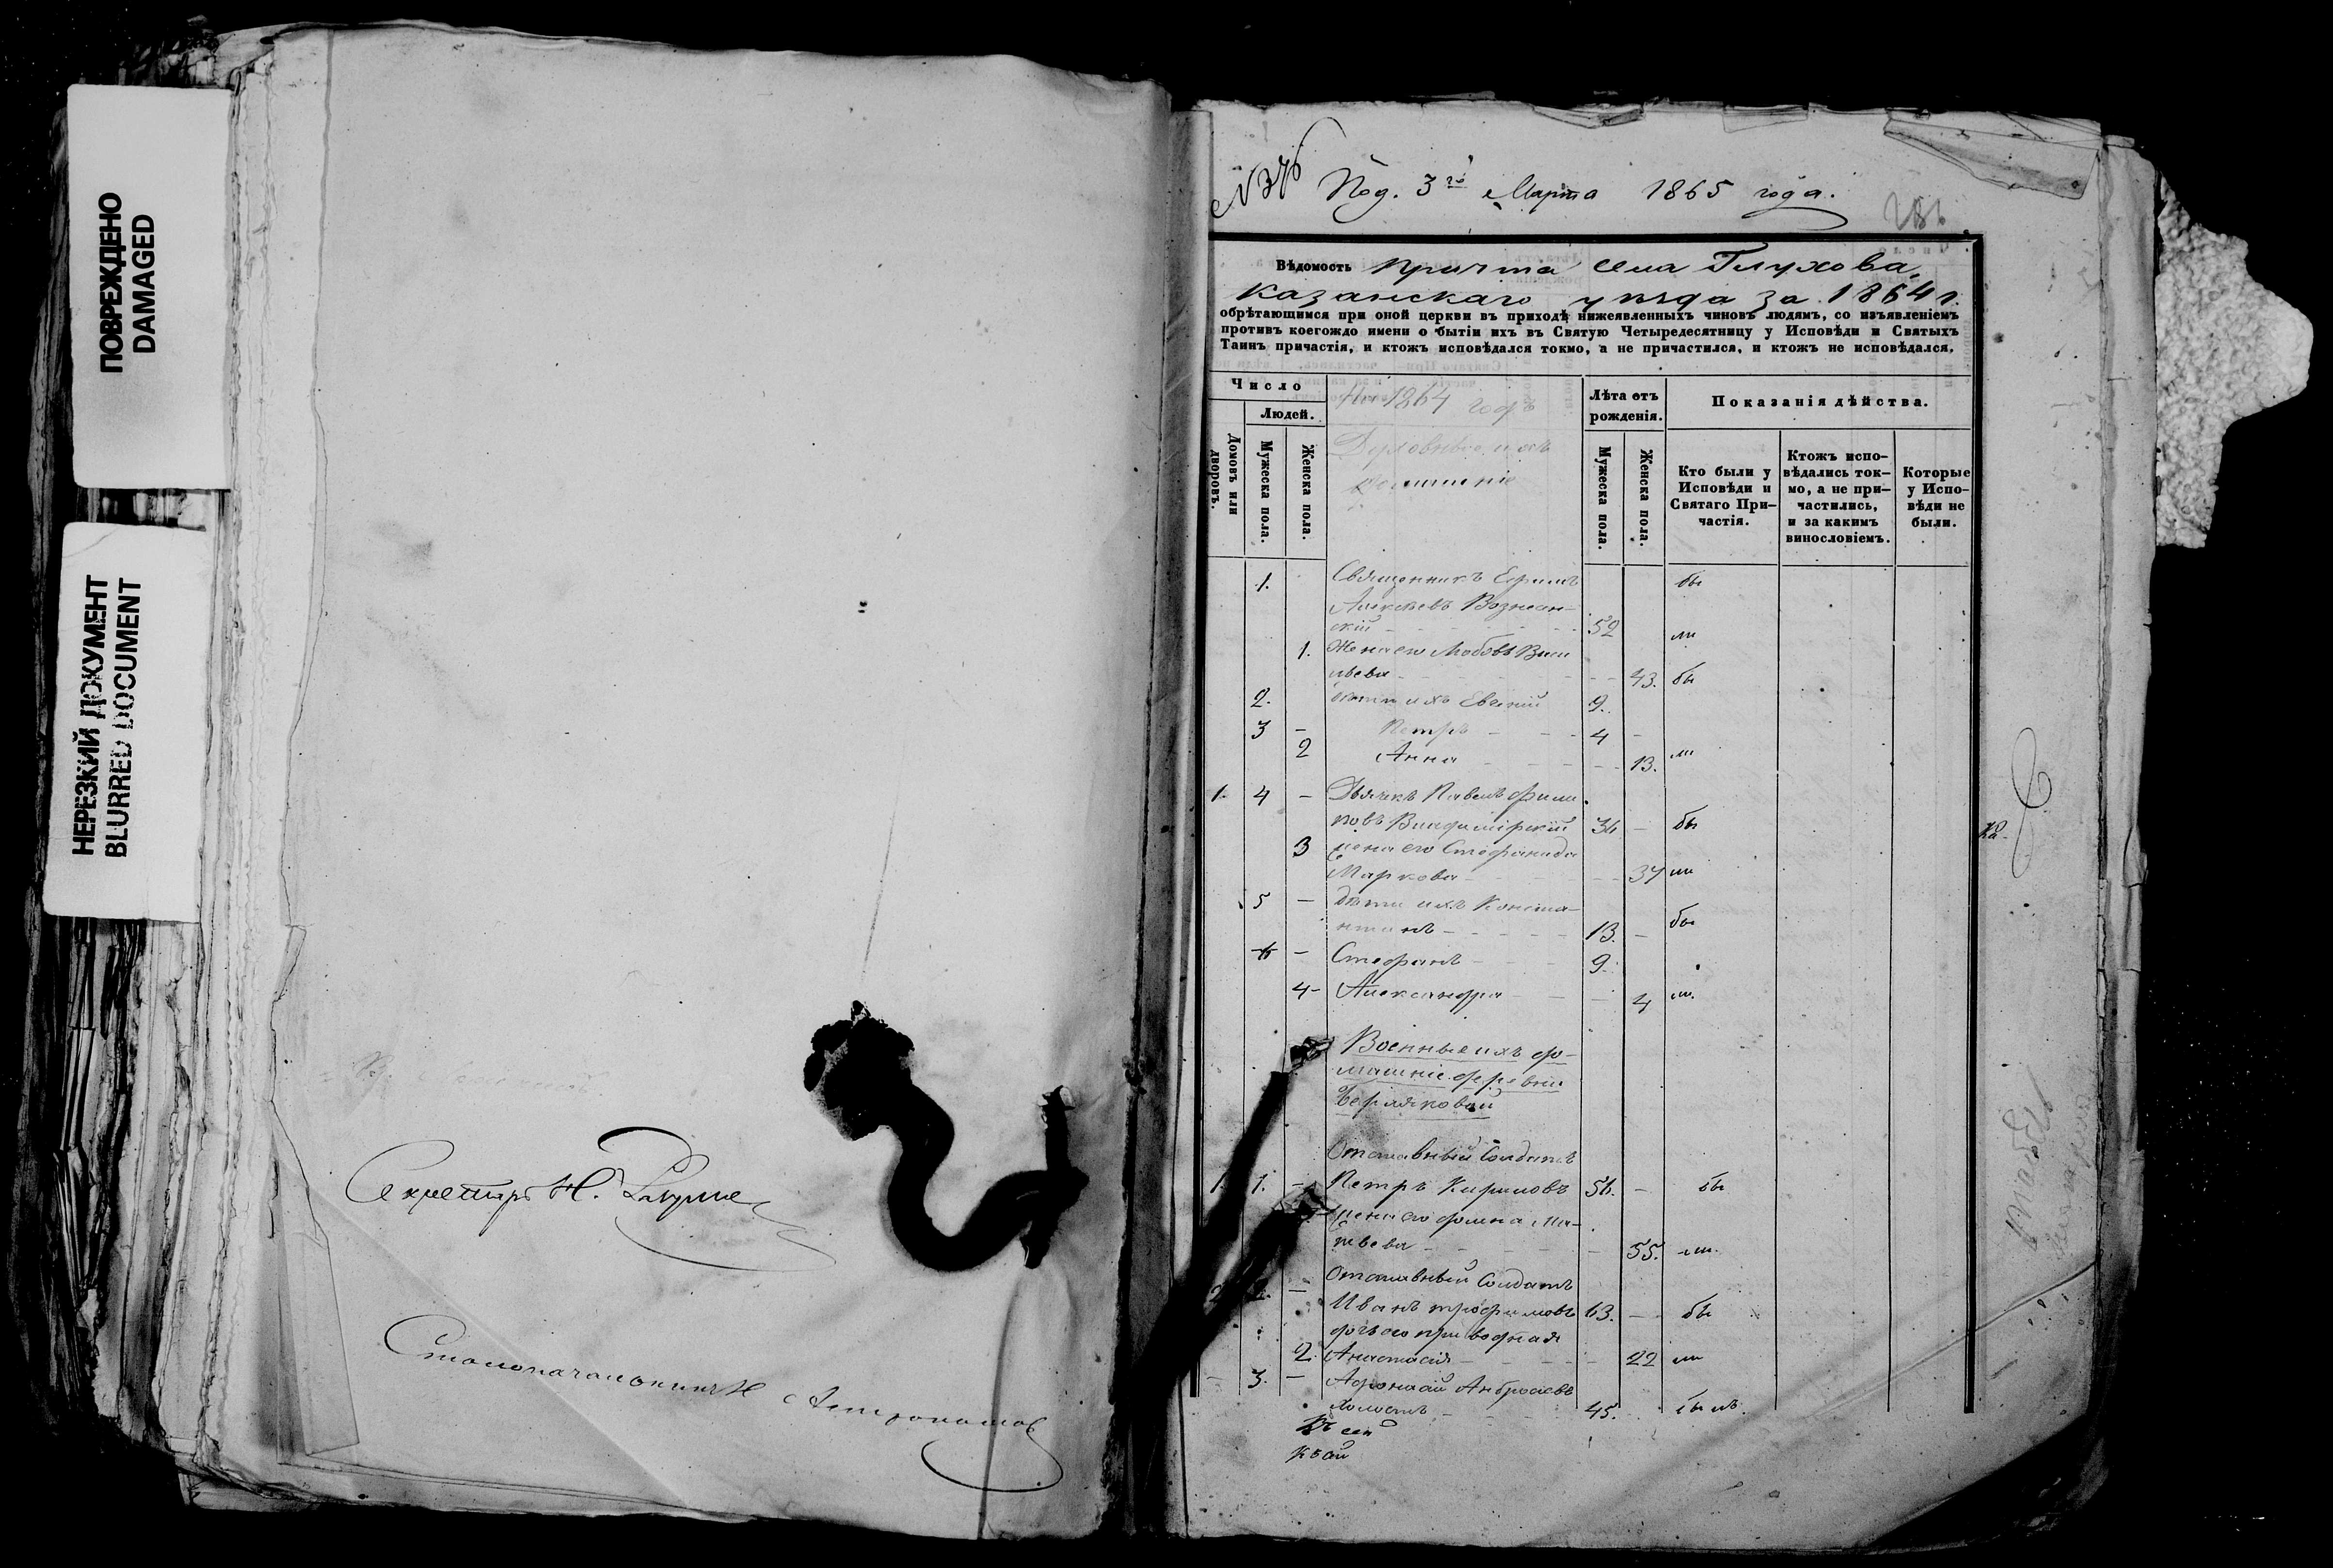 ПОВРЕЖДЕНО
DAMAGED
НЕРЕЗКИЙ ДОКУМЕНТ
BLURRED DOCUMENT
Секретарь Н.
Столоначальникъ
Под. 3го Марта 1865 года.
Вѣдомость причта села Глухова,
Казанскаго уѣзда за 1864 г.
обрѣтающимся при оной церкви въ приходѣ нижеявленныхъ чиновъ людямъ, со изъявленіемъ
противъ коегождо имени о бытіи ихъ въ Святую Четыредесятницу у Исповѣди и Святыхъ
Таинъ причастія, и ктожъ исповѣдался токмо, а не причастился, и ктожъ не исповѣдался.
Число
Людей.
Домовъ или дворовъ.
Мужеска пола.
Женска пола.
На 1864 годъ
Духовные и ихъ
домашніе
Лѣта отъ
рожденія.
Мужеска пола.
Женска пола.
Показанія дѣйства.
Кто были у
Исповѣди и
Святаго При-
частія.
Ктожъ испо-
вѣдались ток-
мо, а не при-
частились,
и за какимъ
винословіемъ.
Которые
у Испо-
вѣди не
были.
1. Священникъ Ефимъ бы
Алексѣевъ Вознесен-
скій 52 ли
1. Жена его Любовь Васи
льева 43. бы
2. дѣти ихъ Евгеній 9.
3 - Петръ 4 -
2 Анна 13. ли
1. 4 - Дьячекъ Павелъ Филип
повъ Владимірскій 36 - бы
3 жена его Стефанида
Маркова 37 ли
5 - дѣти ихъ Конста-
нтинъ 13. - бы
6 - Стефанъ 9.
4 - Александра - 4 ли.
Военные и ихъ до-
машніе деревни
Отставный Солдатъ
1. 1. - Петръ Кириловъ 56. - бы
жена его Фекла Ма-
твѣева - 55. ли.
2 2. - Отставный Солдатъ
Иванъ Трофимовъ 63. - бы
дочь его приводная
2. Анастасія - 22 ли
- 3. - Афонасій Амбросіевъ
холостъ 45. былъ.